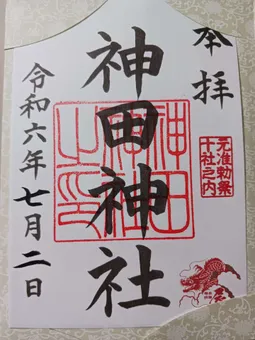 奉拝
元准勅祭
十社之内
神田神社
神田
神社
之印
令和六年七月二日